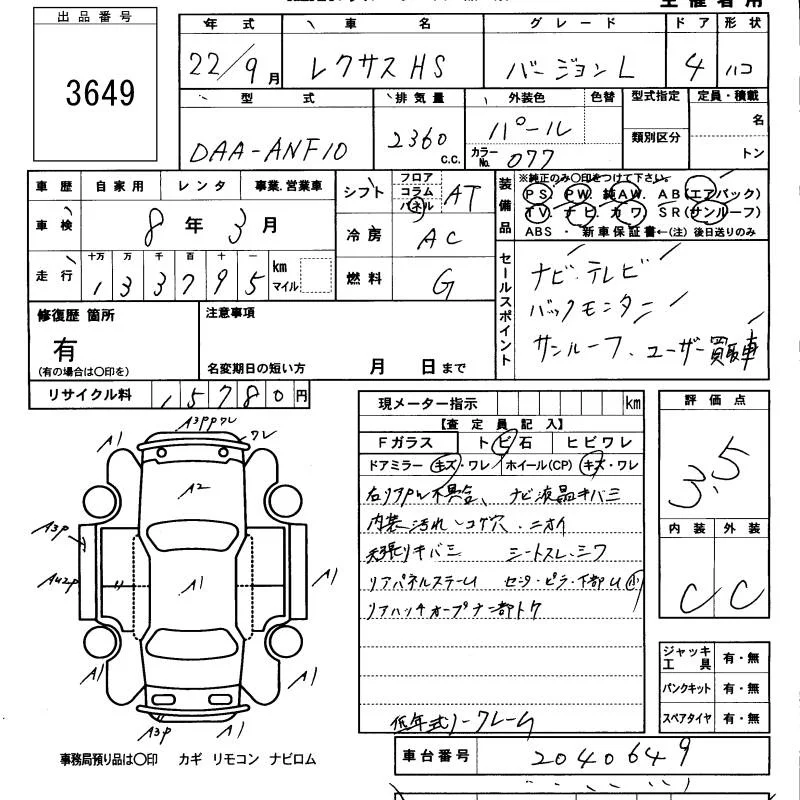 出品番号
3649
年式 車名 グレード ドア 形状
22/9月 レクサスHS バージョンL 4 ハコ
型式 排気量 外装色 色替 型式指定 定員・積載
DAA-ANF10 2360 C.C. パール
カラーNo. 077 類別区分 名
トン
車歴 自家用 レンタ 事業.営業車
シフト フロア コラム パネル AT
車検 8年3月
冷房 AC
走行 十万 万 千 百 十 一 km マイル
133795
燃料 G
装備品
※純正のみ○印をつけて下さい。
PS. PW. 純AW. AB(エアバック)
TV. ナビ. カワ SR(サンルーフ)
ABS ・ 新車保証書←(注) 後日送りのみ
セールスポイント
ナビ・テレビ
バックモニター
サンルーフ、ユーザー買取車
修復歴 箇所
有
(有の場合は○印を)
注意事項
名変期日の短い方 月 日まで
リサイクル料 15780円
現メーター指示 km
【査定員記入】
Fガラス トビ石 ヒビワレ
ドアミラー キズ・ワレ ホイール(CP) キズ・ワレ
右リアPW不具合、ナビ液晶キバミ
内装汚れ、コゲ穴、ニオイ
天張りキバミ シートスレ、シワ
リアパネルステーU センタ・ピラー下部U小
低年式ノークレーム
評価点
3.5
内装 外装
C C
ジャッキ
工具 有・無
パンクキット 有・無
スペアタイヤ 有・無
車台番号 2040649
A3PPワレ
A1 ワレ
A2
A3P
AU2P
A1
A1
A1
A1
A3P
A1
事務局預り品は○印 カギ リモコン ナビロム